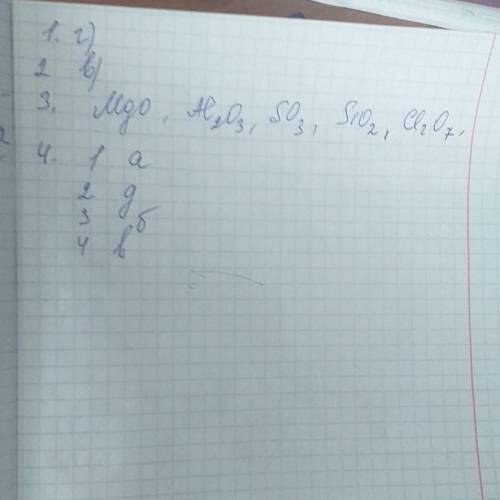 1. г)
2 в)
3. MgO, Al2O3, SO3, SiO2, Cl2O7,
4. 1 а
2 д
3 б
4 в